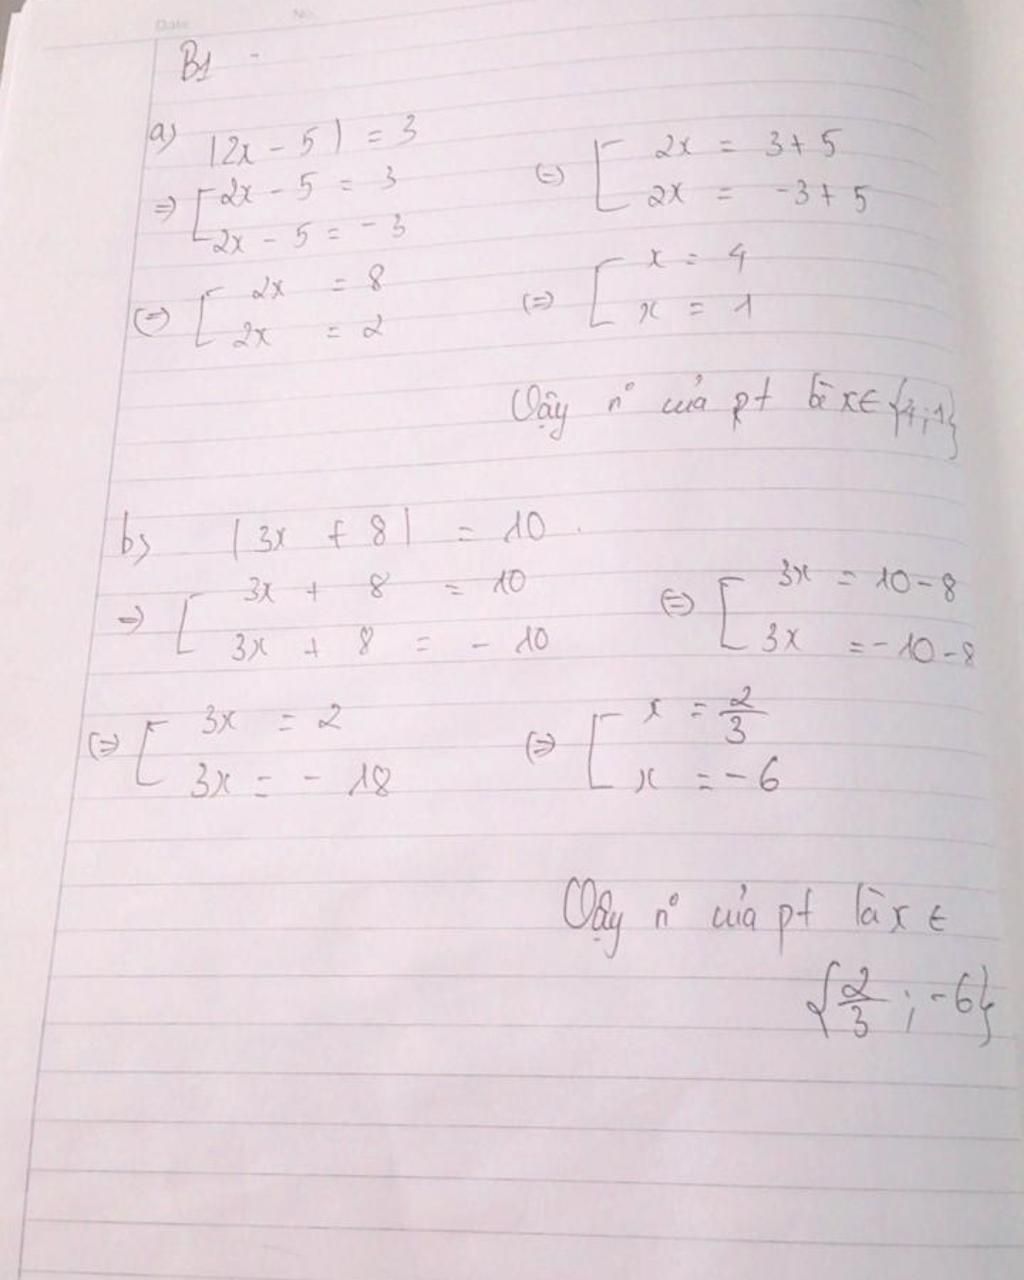 Date No.
B1
a) |2x - 5| = 3
⇒ [ 2x - 5 = 3
2x - 5 = -3
⇔ [ 2x = 3 + 5
2x = -3 + 5
⇔ [ 2x = 8
2x = 2
⇔ [ x = 4
x = 1
Vậy n° của pt là x ∈ {4; 1}
b) |3x + 8| = 10.
⇒ [ 3x + 8 = 10
3x + 8 = - 10
⇔ [ 3x = 10 - 8
3x = -10 - 8
⇔ [ 3x = 2
3x = - 18
⇔ [ x = 2/3
x = -6
Vậy n° của pt là x ∈
{2/3 ; -6}